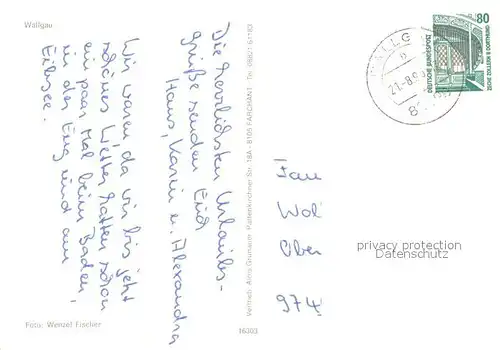 Wallgau
Die herzlichsten Urlaubs-
grüße senden Euch
Hans, Karin u. Alexandra
Wir waren, da wir bis jetzt
schönes Wetter hatten schon
ein paar Mal beim Baden,
in der Eng und am
Eibsee.
Foto: Wenzel Fischer
16303
Vertrieb: Alois Grumann, Partenkirchner Str. 18A - 8105 FARCHANT Tel. 08821 61783
WALLG
b
21.-8.9
80
DEUTSCHE BUNDESPOST
ZECHE ZOLLERN II DORTMUND
Frau
Wol
Über
974
privacy protection
Datenschutz